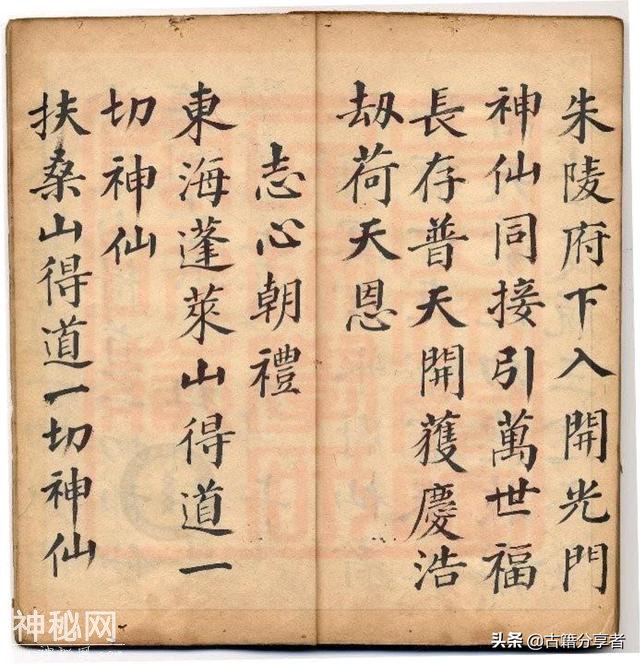 朱陵府下入開光門
神仙同接引萬世福
長存普天開獲慶浩
劫荷天恩
志心朝禮
東海蓬萊山得道一
切神仙
扶桑山得道一切神仙
神秘网
头条 @古籍分享者